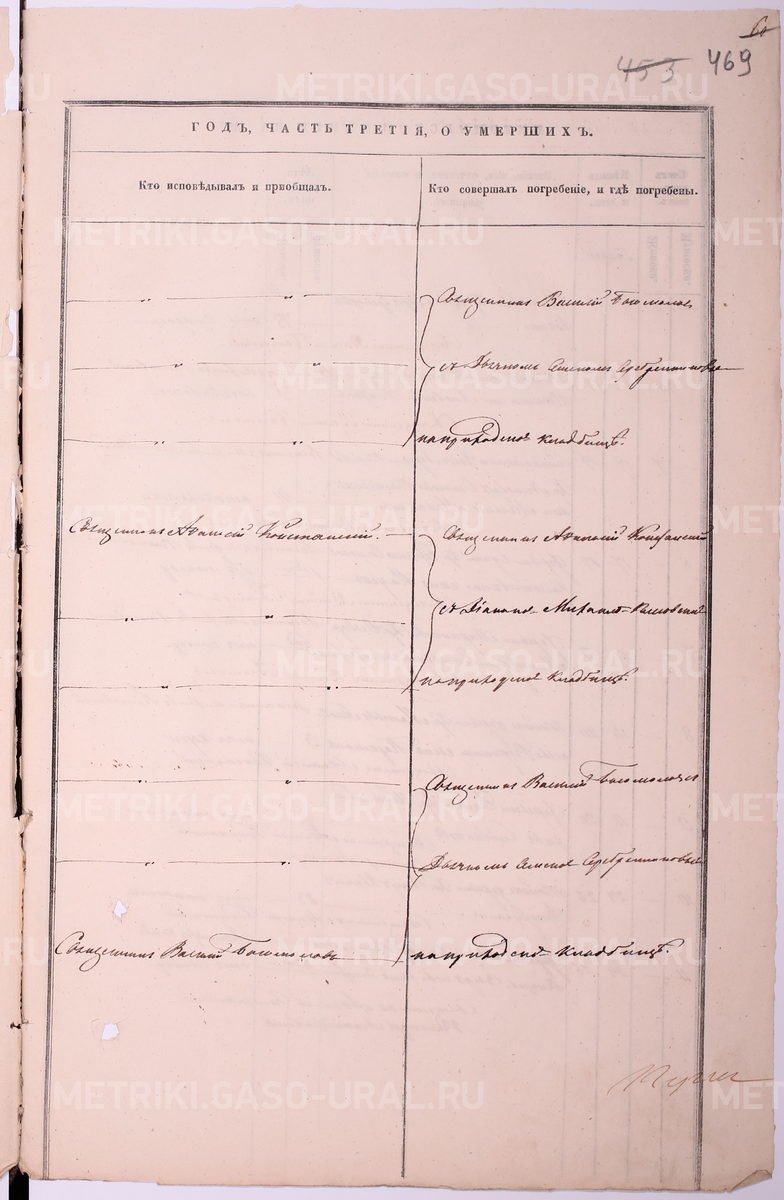 453 469
ГОДЪ, ЧАСТЬ ТРЕТІЯ, О УМЕРШИХЪ.
Кто исповѣдывалъ и пріобщалъ.
Кто совершалъ погребеніе, и гдѣ погребены.
Священникъ Василій Богомоловъ
съ Дьячкомъ Семеномъ Серебренниковымъ
на приходскомъ кладбищѣ.
Священникъ Афанасій
Священникъ Афанасій
съ
на приходскомъ кладбищѣ.
Священникъ Василій Богомоловъ
Дьячкомъ Семеномъ Серебренниковымъ
Священникъ Василій Богомоловъ
на приходскомъ кладбищѣ.
METRIKI.GASO-URAL.RU